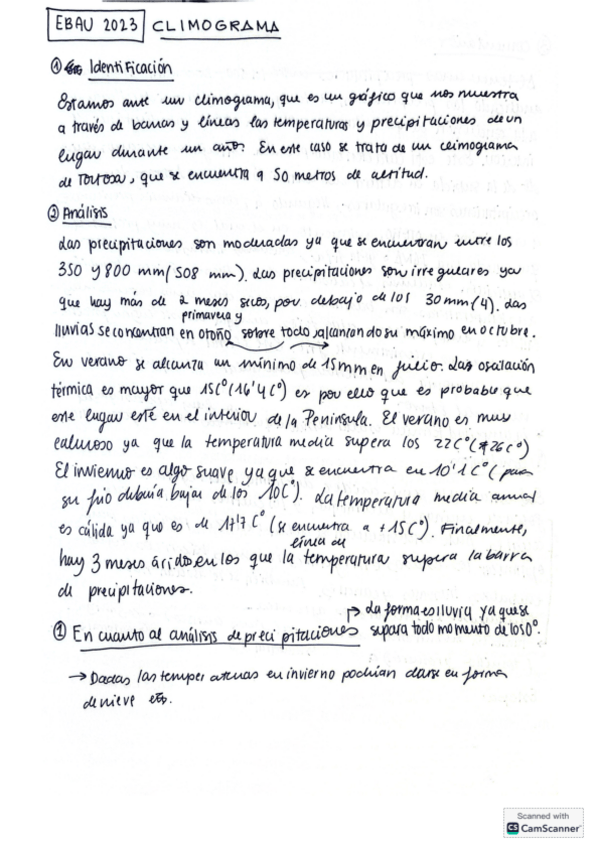 EBAU 2023 CLIMOGRAMA
① Identificación
Estamos ante un climograma, que es un gráfico que nos muestra
a través de barras y líneas las temperaturas y precipitaciones de un
lugar durante un año. En este caso se trata de un climograma
de Tortosa, que se encuentra a 50 metros de altitud.
② Análisis
Las precipitaciones son moderadas ya que se encuentran entre los
350 y 800 mm (508 mm). Las precipitaciones son irregulares ya
que hay más de 2 meses secos, por debajo de los 30 mm (4). Las
primavera y
lluvias se concentran en otoño sobre todo, alcanzando su máximo en octubre.
En verano se alcanza un mínimo de 15 mm en julio. Las oscilación
térmica es mayor que 15Cº (16'4Cº) es por ello que es probable que
este lugar esté en el interior de la Península. El verano es muy
caluroso ya que la temperatura media supera los 22Cº (26Cº)
El invierno es algo suave ya que se encuentra en 10'1Cº (para
su frio debería bajar de los 10Cº). La temperatura media anual
es cálida ya que es de 17'7Cº (se encuentra a +15Cº). Finalmente,
línea de
hay 3 meses áridos en los que la temperatura supera la barra
de precipitaciones.
→ La forma es lluvia ya que se
① En cuanto al análisis de precipitaciones supara todo momento de los 0º.
→ Dadas las temperaturas en invierno podrían darse en forma
de nieve etc.
Scanned with
CS CamScanner